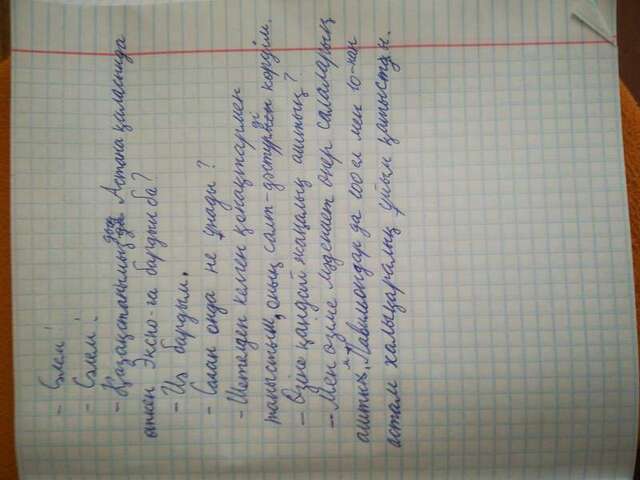 - Сәлем!
- Сәлем!
- Қазақстанымыздың Астана қаласында
өткен Экспо-ға бардың ба?
- Иә бардым.
- Саған онда не ұнады?
- Шетелден келген қонақтармен
таныстым, оның салт-дәстүрлерін көрдім.
- Өзіңе қандай жаңалық аштың?
- Мен өзіме мәдениет өнер саласының
аштым. Павильондар да 100 ел мен 10-нан
астам халықаралық ұйым қатысты.